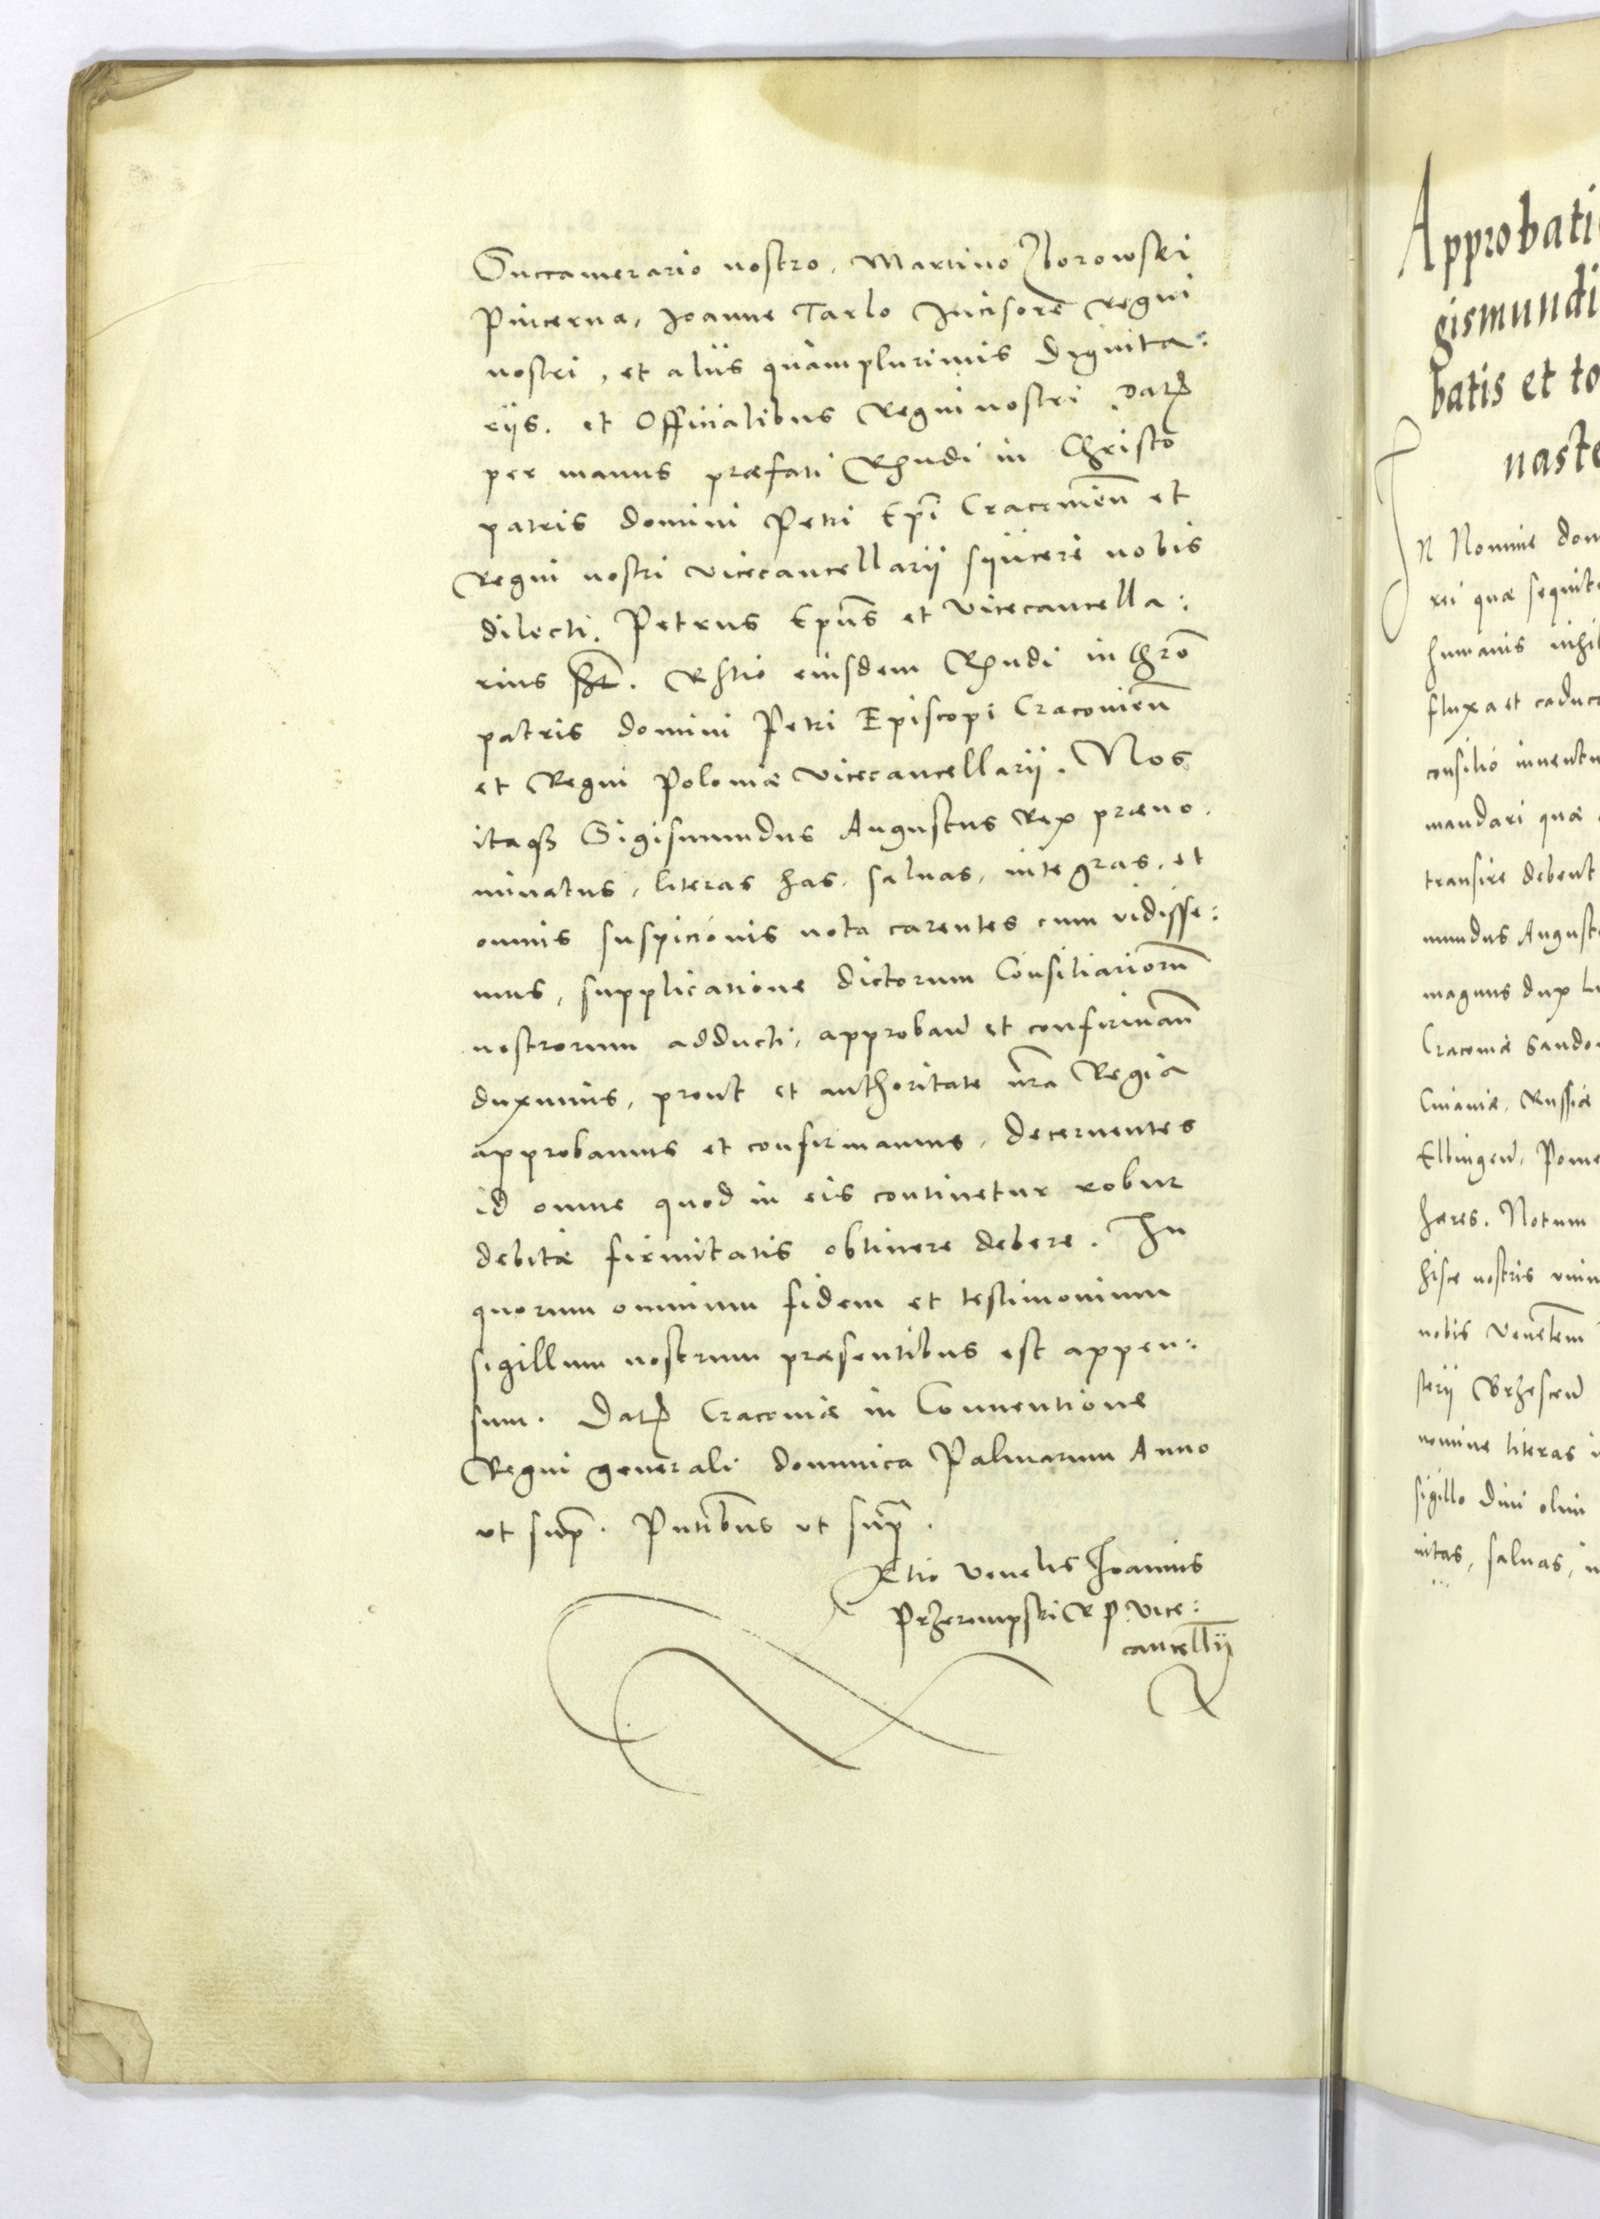 Succamerario nostro, Martino Zborowski
Pincerna, Joanne Tarlo Incisore Regni
nostri, et aliis quamplurimis dignita:
riis. et Officialibus Regni nostri. Dat̃
per manus præfati Rñdi in Christo
patris domini Petri Epĩ Cracouien̄ et
Regni nostri vicecancellarij syncere nobis
dilecti. Petrus Epũs et Vicecancella:
rius sst. Rltio eiusdem Rñdi in Chrõ
patris domini Petri Episcopi Cracouien̄
et Regni Poloniæ vicecancellarij. Nos
itaqȝ Sigismundus Augustus Rex præno.
minatus, literas has, saluas, integras, et
omnis suspicionis nota carentes cum vidisse:
mus, supplicatione dictorum Consiliariorũ
nostrorum adducti, approban̄ et confirman̄
duximus, prout et authoritate nr̃a Regia
approbamus et confirmamus, decernentes
id omne quod in eis continetur robur
debitæ firmitatis obtinere debere. In
quorum omnium fidem et testimonium
sigillum nostrum præsentibus est appen:
sum. Dat̃ Cracouiæ in Conuentione
Regni generali dominica Palmarum Anno
ut sup̃. Pñtibus ut sup̃.
Rltio Venelis Joannis
Przerempski R P Vice:
cancellĩj
Approbati
gismundi
batis et to
naste
In Nomine dom
rei quæ sequit
humanis nihil
fluxa et caduc
consilio inuentu
mandari quæ
transire debent
mundus August
magnus dux Li
Cracouiæ Sando
Cuiauiæ, Russiæ
Elbingen̄, Pome
hæres. Notum
hisce nostris vni
nobis Venelem
sterij Brzescen̄
nomine literas i
sigillo Diui olim
nitas, saluas, i